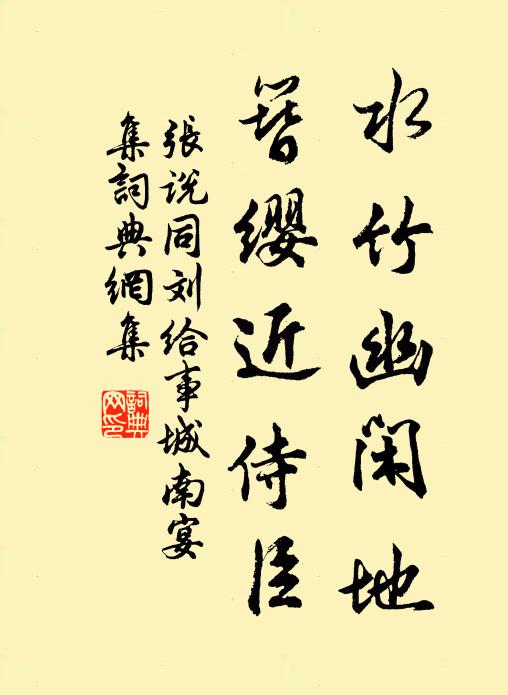 水竹幽闲地
簪缨近侍臣
張说同刘给事城南宴
集詞典網集
詞典网印